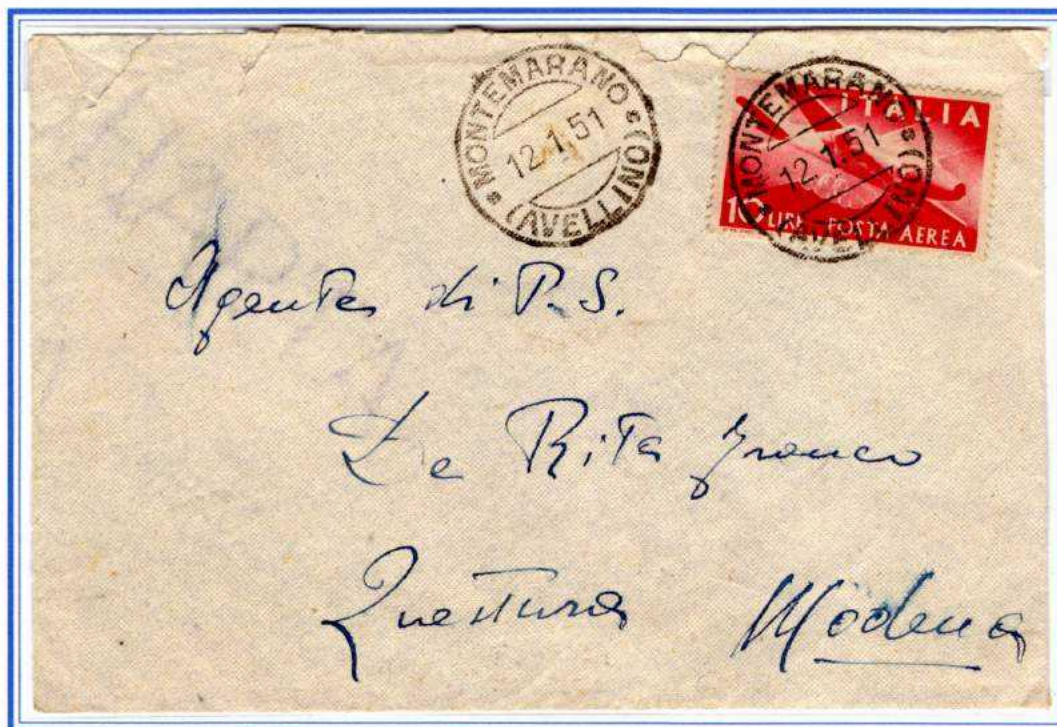 MONTEMARANO
12.1.51
(AVELLINO)
MONTEMARANO
12.1.51
ITALIA
10 LIRE POSTA AEREA
Agente di P.S.
De Rita Franco
Questura Modena